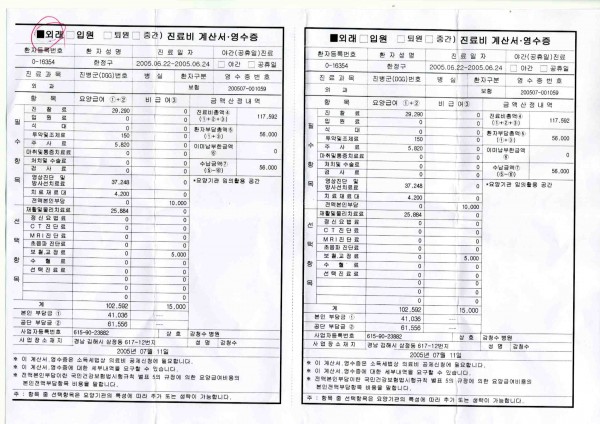 ■외래 □입원 □퇴원 □중간) 진료비 계산서·영수증
환자등록번호 환 자 성 명 진 료 일 자 야간(공휴일)진료
0-16354 한정구 2005.06.22~2005.06.24 □ 야간 □ 공휴일
진 료 과 목 진병군(DGG)번호 병 실 환자구분 영 수 증 번 호
외 과 보험 200507-001059
항 목 요양급여 ①+② 비 급여③ 금 액 산 정 내 역
필 수 항 목
진 찰 료 29,290 0
입 원 료 0 0
식 대 0 0
투약및조제료 150 0
주 사 료 5,820 0
마취및통증치료료 0 0
처치및 수술료 0 0
검 사 료 0 0
영상진단 및 방사선치료료 37,248 0
치 료 재 료 대 4,200 0
전액본인부담 0 10,000
재활및물리치료료 25,884 0
선 택 항 목
정 신 요 법 료 0 0
C T 진 단 료 0 0
M R I 진 단 료 0 0
초음파 진단료 0 0
보 철,교 정 료 0 5,000
수 혈 료 0 0
선 택 진 료 료 0 0
진료비총액④ (①+②+③) 117,592
환자부담총액⑤ (①+③) 56,000
이미납부한금액 ⑥ 0
수납금액⑦ (⑤-⑥) 56,000
*요양기관 임의활용 공간
계 102,592 15,000
본인 부담금 ① 41,036 ---
공단 부담금 ② 61,556 ---
사업자등록번호 615-90-23882 상 호 김청수 병원
사 업 장 소 재 지 경남 김해시 삼정동 617-12번지 성 명 김청수
2005년 07월 11일
* 이 계산서.영수증은 소득세법상 의료비 공제신청에 필요합니다.
* 이 계산서.영수증에 대한 세부내역을 요구할 수 있습니다.
* 전액본인부담이란 국민건강보험법시행규칙 별표 5의 규정에 의한 요양급여비용의
본인전액부담항목 비용을 말합니다.
주 : 항목 중 선택항목은 요양기관의 특성에 따라 추가 또는 생략이 가능합니다.
■외래 □입원 □퇴원 □중간) 진료비 계산서·영수증
환자등록번호 환 자 성 명 진 료 일 자 야간(공휴일)진료
0-16354 한정구 2005.06.22~2005.06.24 □ 야간 □ 공휴일
진 료 과 목 진병군(DGG)번호 병 실 환자구분 영 수 증 번 호
외 과 보험 200507-001059
항 목 요양급여 ①+② 비 급여③ 금 액 산 정 내 역
필 수 항 목
진 찰 료 29,290 0
입 원 료 0 0
식 대 0 0
투약및조제료 150 0
주 사 료 5,820 0
마취및통증치료료 0 0
처치및 수술료 0 0
검 사 료 0 0
영상진단 및 방사선치료료 37,248 0
치 료 재 료 대 4,200 0
전액본인부담 0 10,000
재활및물리치료료 25,884 0
선 택 항 목
정 신 요 법 료 0 0
C T 진 단 료 0 0
M R I 진 단 료 0 0
초음파 진단료 0 0
보 철,교 정 료 0 5,000
수 혈 료 0 0
선 택 진 료 료 0 0
진료비총액④ (①+②+③) 117,592
환자부담총액⑤ (①+③) 56,000
이미납부한금액 ⑥ 0
수납금액⑦ (⑤-⑥) 56,000
*요양기관 임의활용 공간
계 102,592 15,000
본인 부담금 ① 41,036 ---
공단 부담금 ② 61,556 ---
사업자등록번호 615-90-23882 상 호 김청수 병원
사 업 장 소 재 지 경남 김해시 삼정동 617-12번지 성 명 김청수
2005년 07월 11일
* 이 계산서.영수증은 소득세법상 의료비 공제신청에 필요합니다.
* 이 계산서.영수증에 대한 세부내역을 요구할 수 있습니다.
* 전액본인부담이란 국민건강보험법시행규칙 별표 5의 규정에 의한 요양급여비용의
본인전액부담항목 비용을 말합니다.
주 : 항목 중 선택항목은 요양기관의 특성에 따라 추가 또는 생략이 가능합니다.